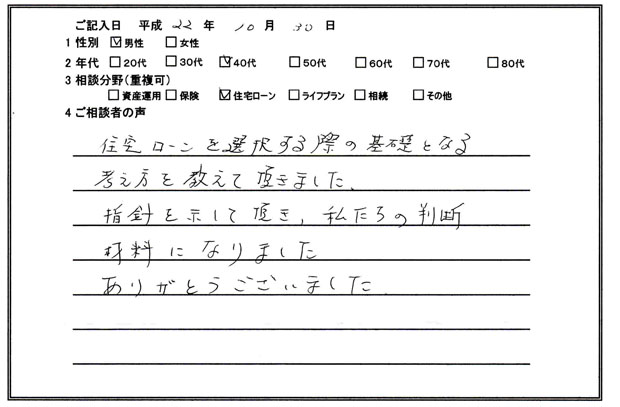 ご記入日 平成 22 年 10 月 30 日
1 性別 ☑男性 □女性
2 年代 □20代 □30代 ☑40代 □50代 □60代 □70代 □80代
3 相談分野(重複可)
□資産運用 □保険 ☑住宅ローン □ライフプラン □相続 □その他
4 ご相談者の声
住宅ローンを選択する際の基礎となる
考え方を教えて頂きました。
指針を示して頂き、私たちの判断
材料になりました
ありがとうございました